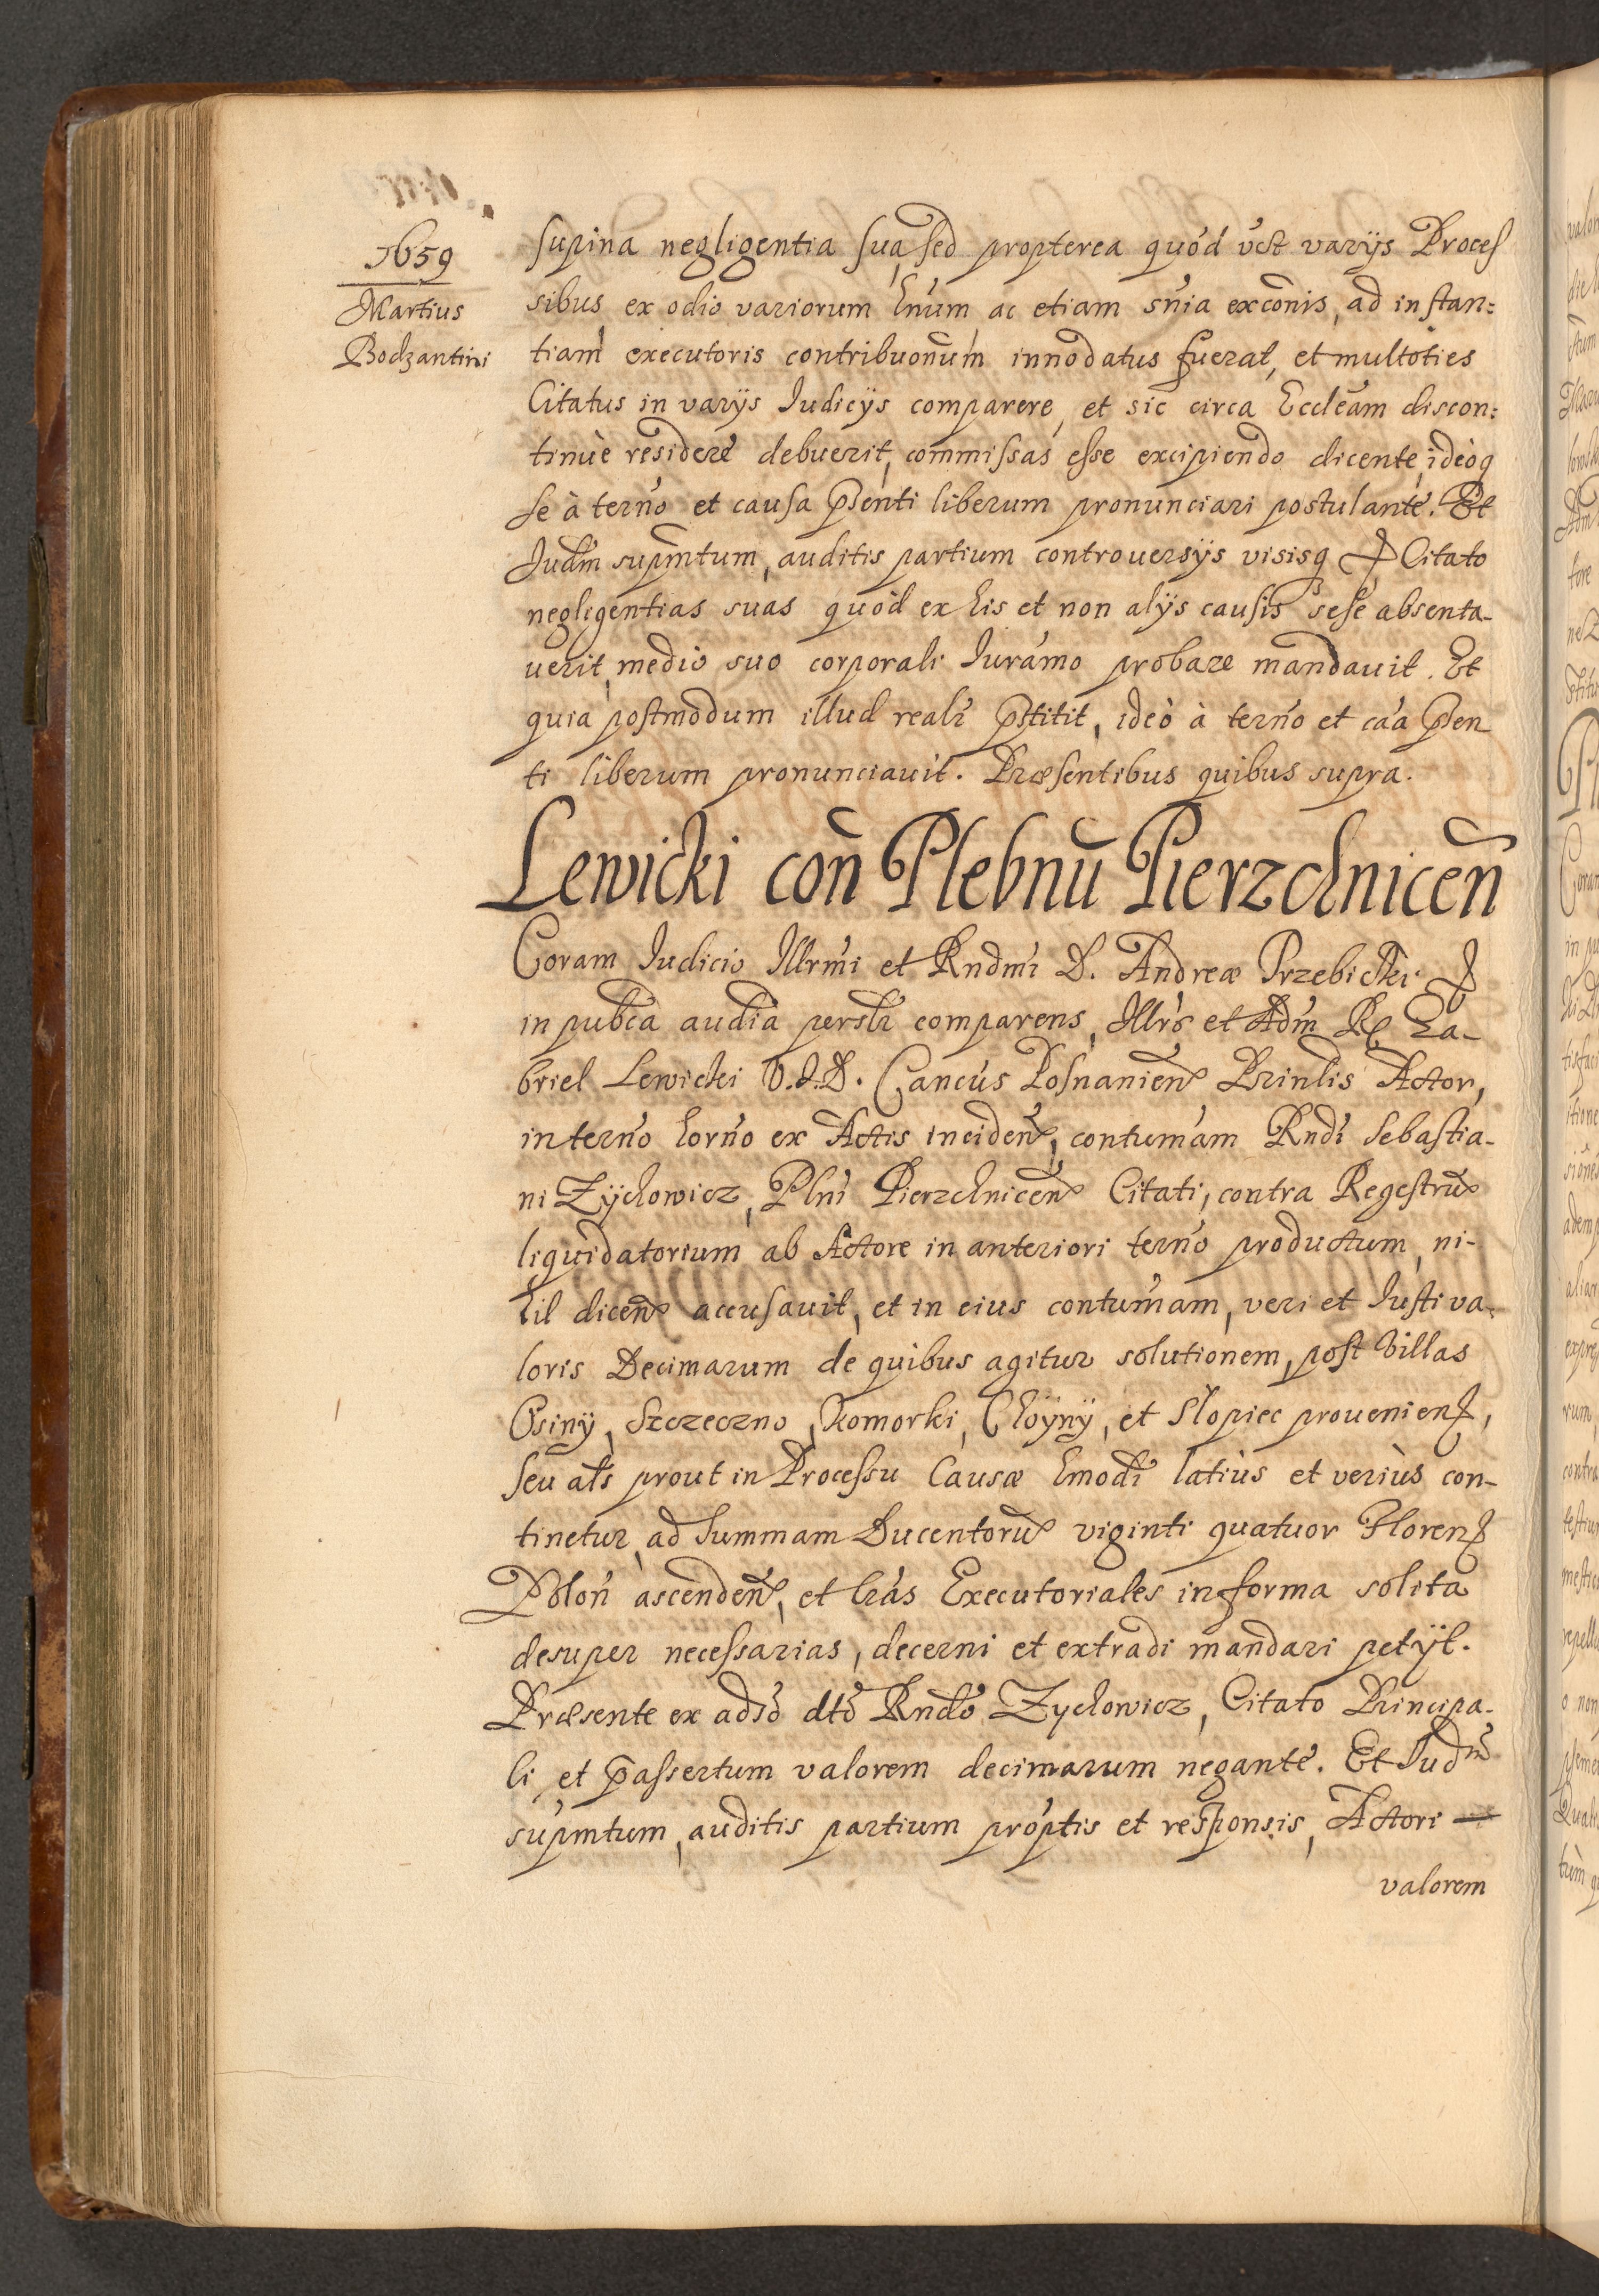 1659
Martius
Bodzantini
supina negligentia sua, sed propterea quód vĕst varÿs Proces
sibus ex odio variorum hñum ac etiam sñia excõnis, ad instan:
tiam executoris contribuonum innodatus fuerat, et multoties
Citatus in varÿs Iudicÿs comparere, et sic circa Ecclẽam discon:
tinùe residere debuerit, commissas esse excipiendo dicente, ideoq
se à terño et causa pñsenti liberum pronunciari postulante. Et
Iudm̃ supm̃tum, auditis partium controversÿs visisq Citato
negligentias suas quòd ex his et non alÿs causis sese absenta-
uerit, medio suo corporali Iuram̃o probare mandauit. Et
quia postmodum illud realr̃ pstitit, ideò à terño et cãa psen
ti liberum pronunciauit. Præsentibus quibus supra.
Lewicki coñ Plebnũ Pierzchniceñ
Coram Iudicio Illrm̃i et Rndm̃i D. Andreæ Przebicki
in pubca audia persl̃r comparens, Illr̃s et Adm̃ R. Ga-
briel Lewicki V.I.D. Cancũs Posnanieñ Prinlis Actor,
in terño horño ex Actis incideñ, contumãam Rndi Sebastia-
ni Zÿchowicz, Plñi Pierzchniceñ Citati, contra Regestrũ
liquidatorium ab Actore in anteriori terño productum, ni-
hil diceñ accusauit, et in eius contumãam, veri et Iusti va-
loris Decimarum de quibus agitur solutionem, post Villas
Osinÿ, Szczeczno, Komorki, Choÿnÿ, et Słopiec prouenien,
seu al̃s prout in Processu Causæ hmodi latiùs et veriùs con-
tinetur, ad summam Ducentorũ viginti quatuor Floren
Poloñ ascendeñ, et lr̃as Executoriales in forma solita
desuper necessarias, decerni et extradi mandari petÿt.
Præsente ex adső dtő Rndő Zychowicz, Citato Principa-
li et p̃assertum valorem decimarum negante. Et Iudm̃
supm̃tum, auditis partium propt̃is et responsis, Actori
valorem